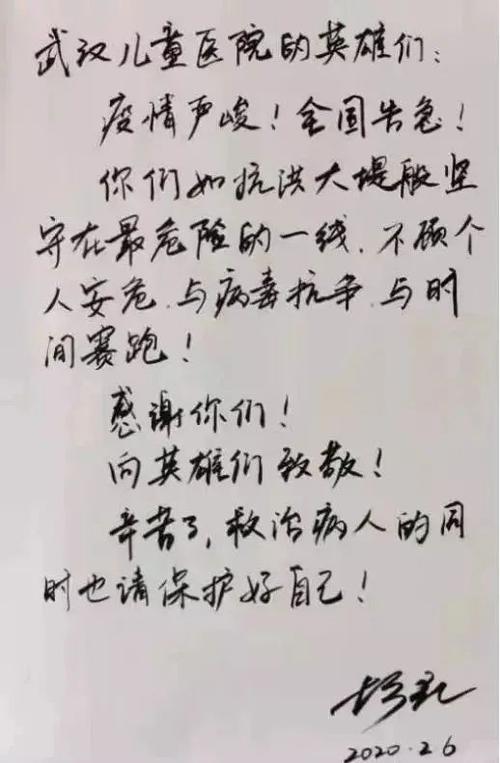 武汉儿童医院的英雄们：
疫情严峻！全国告急！
你们如抗洪大堤般坚
守在最危险的一线、不顾个
人安危、与病毒抗争、与时
间赛跑！
感谢你们！
向英雄们致敬！
辛苦了，救治病人的同
时也请保护好自己！
2020.2.6